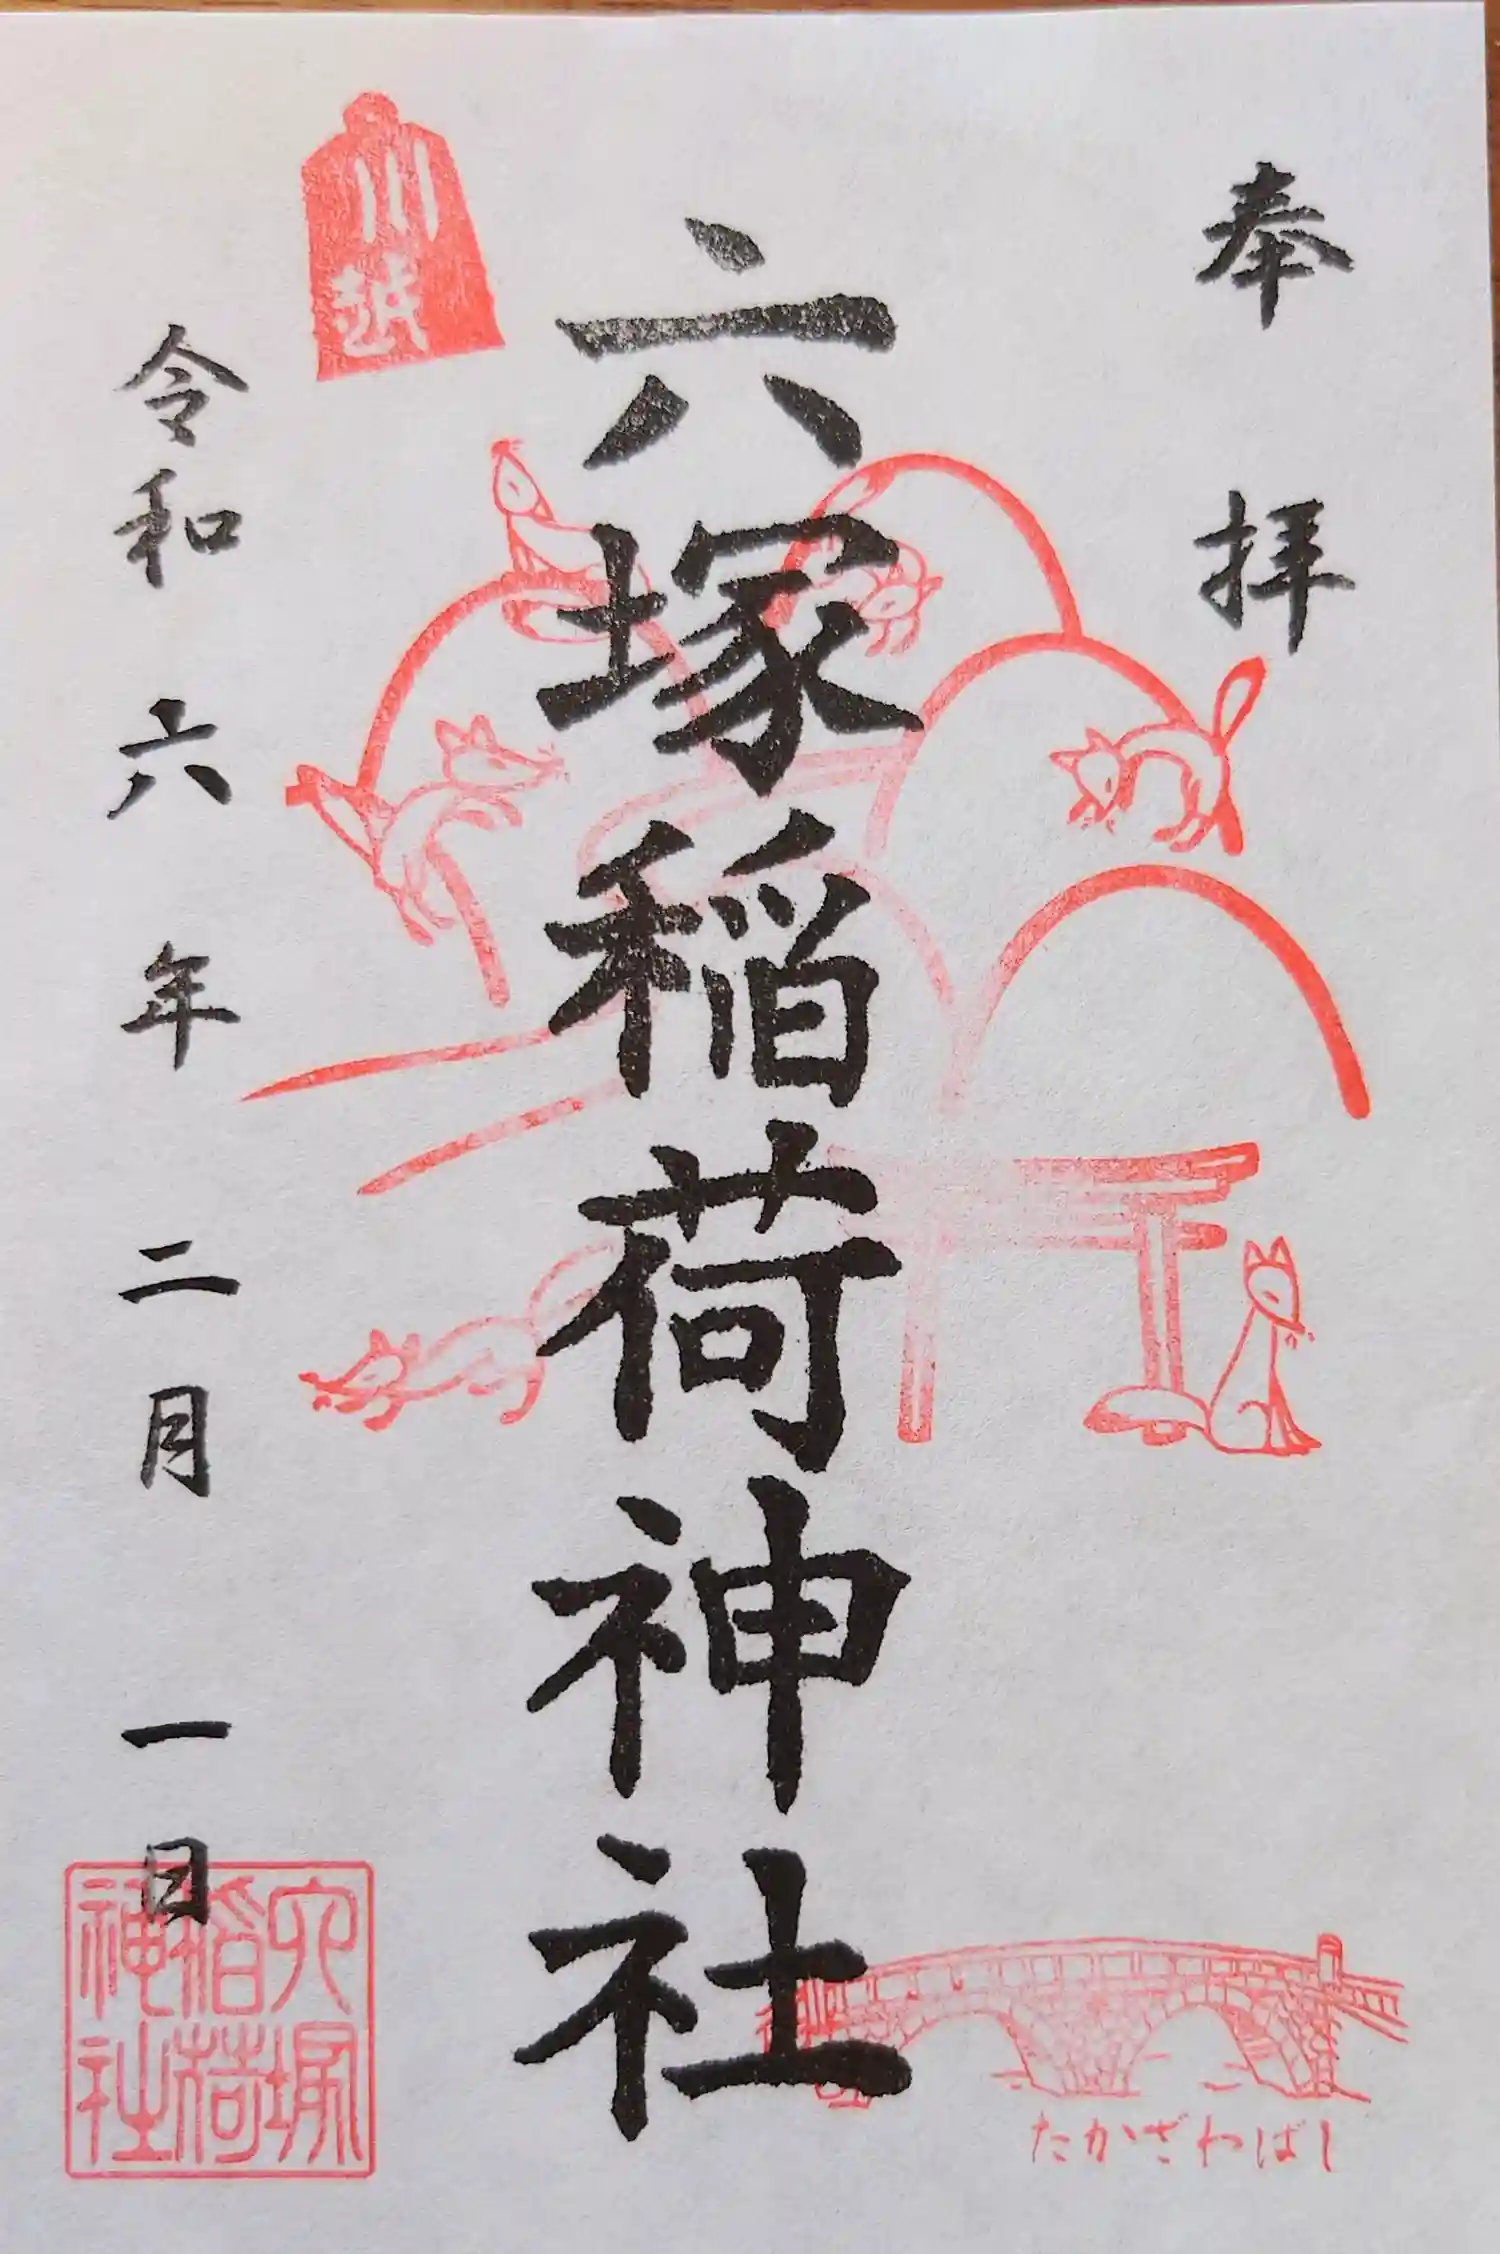 奉拝
川越
六塚稲荷神社
令和六年二月一日
六塚
稲荷
神社
たかざわばし